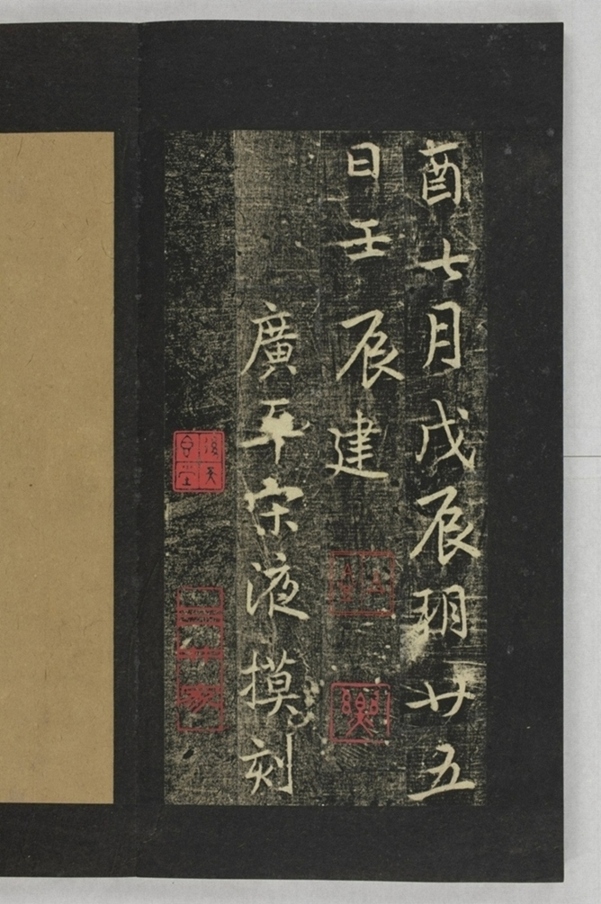 酉七月戊辰朔廿五
日壬辰建
廣平宋液摸刻